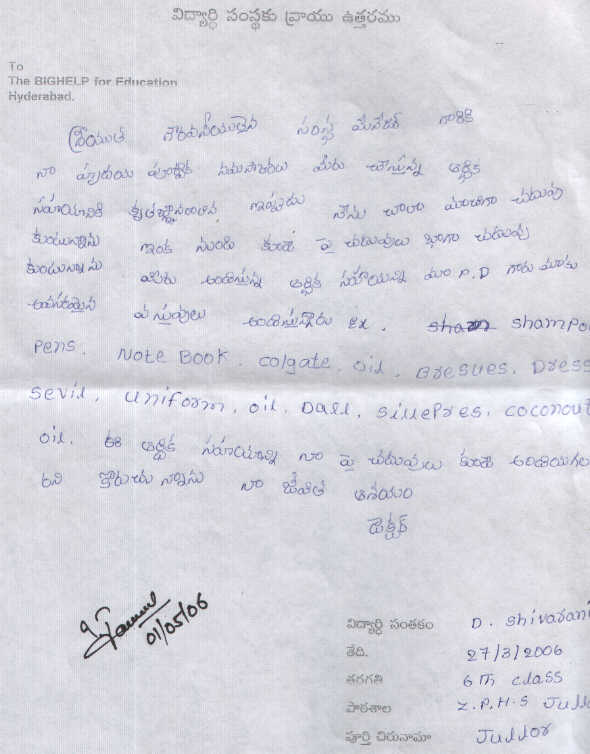 విద్యార్థి సంస్థకు వ్రాయు ఉత్తరము
To
The BIGHELP for Education
Hyderabad.
శ్రీయుత గౌరవనీయులైన సంస్థ మేనేజర్ గారికి
నా హృదయ పూర్వక నమస్కారాలు మీరు చేస్తున్న ఆర్థిక
సహాయానికి ఇప్పుడు నేను చాలా మంచిగా చదువు
కుంటున్నాను ఇంక నుండి కూడా పై చదువులు బాగా చదువు
కుంటున్నాను మీరు అందిస్తున్న ఆర్థిక సహాయాన్ని మా P.D గారు మాకు
అవసరమైన వస్తువులు అందిస్తున్నారు ex. shampo
Pens. Note Book. colgate, oil. Bresues. Dress
sevil. uniform, oil. Dall. sillepres. coconout
oil. ఈ ఆర్థిక సహాయాన్ని నా పై చదువులు కూడా
అని కోరుచున్నాను నా జీవిత ఆశయం
డాక్టర్
01/05/06
విద్యార్థి సంతకం D. shivarani
తేది. 27/3/2006
తరగతి 6 Th class
పాఠశాల Z.P.H.S
పూర్తి చిరునామా Jullor